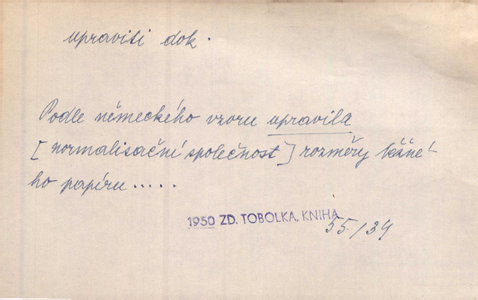 upraviti dok.
Podle německého vzoru upravila
[normalisační společnost] rozměry běžné-
ho papíru.....
1950 ZD. TOBOLKA, KNIHA
55/34